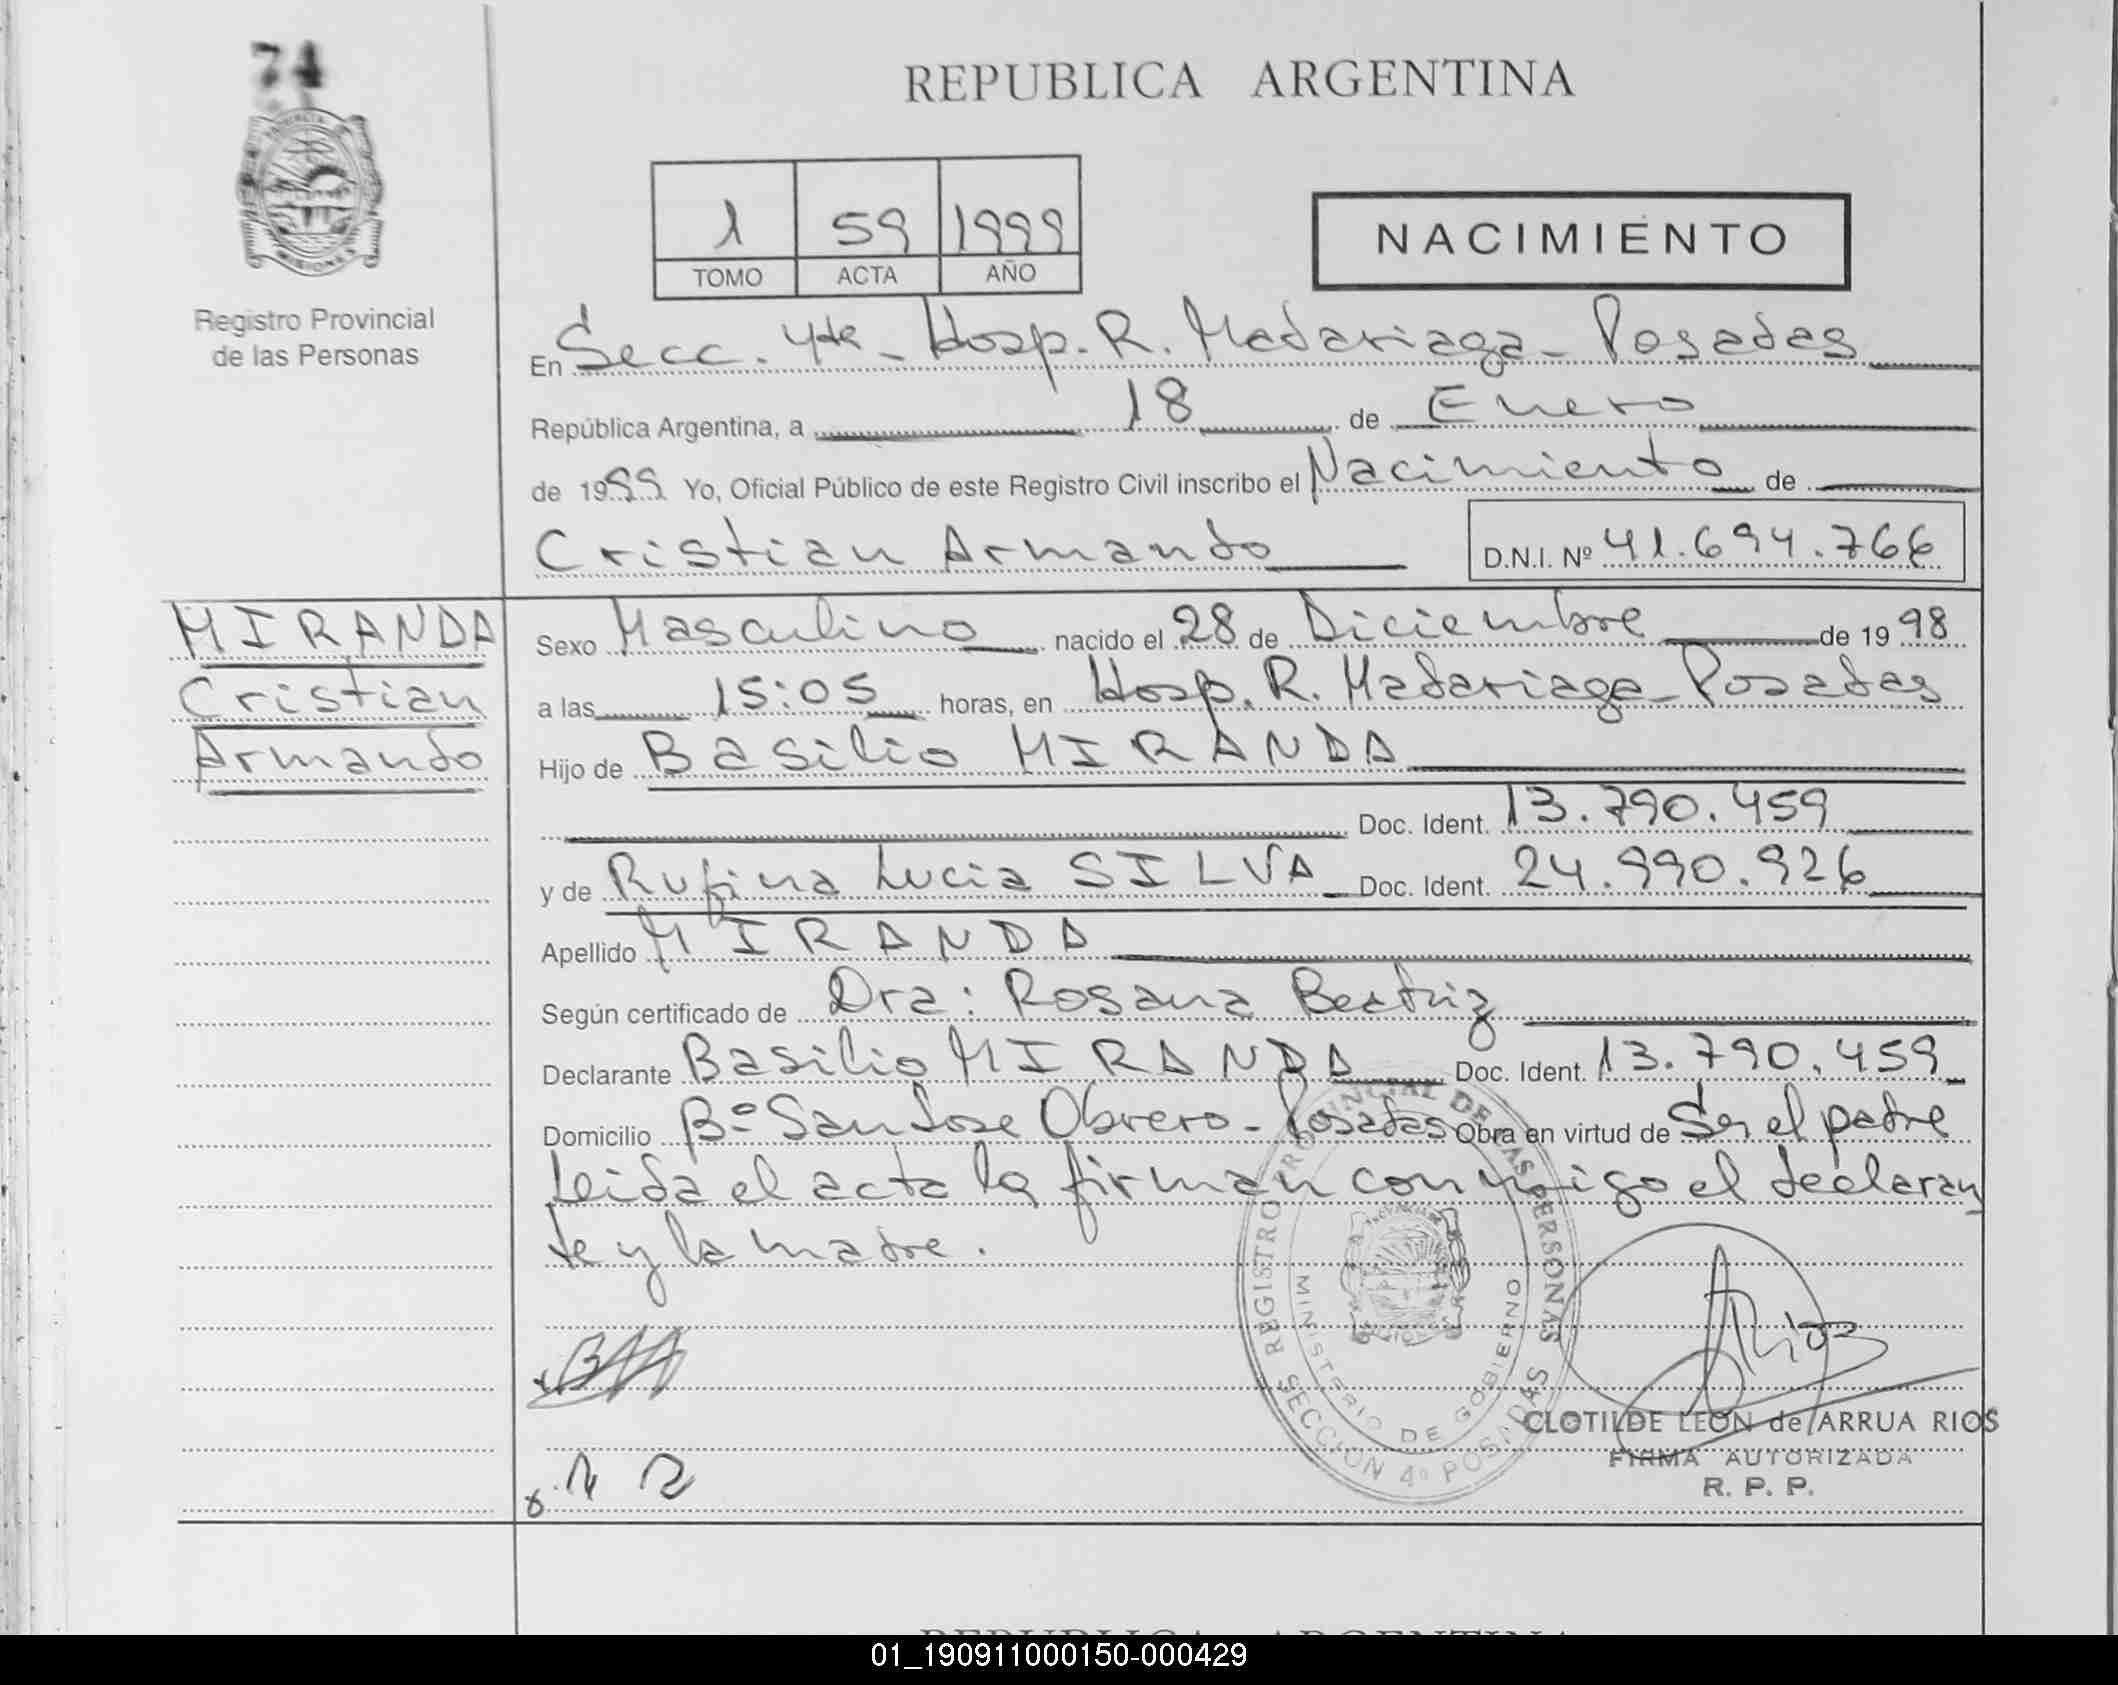 74
REPUBLICA ARGENTINA
1 59 1999
TOMO ACTA AÑO
NACIMIENTO
Registro Provincial
de las Personas
En Secc. 4ta - Hosp. R. Madariaga - Posadas
República Argentina, a 18 de Enero
de 1999 Yo, Oficial Público de este Registro Civil inscribo el Nacimiento de
Cristian Armando D.N.I. Nº 41.694.766
MIRANDA
Cristian
Armando
Sexo Masculino nacido el 28 de Diciembre de 1998
a las 15:05 horas, en Hosp. R. Madariaga - Posadas
Hijo de Basilio MIRANDA
Doc. Ident. 13.790.459
y de Rufina Lucia SILVA Doc. Ident. 24.990.926
Apellido MIRANDA
Según certificado de Dra: Rosana Beatriz
Declarante Basilio MIRANDA Doc. Ident. 13.790.459
Domicilio Bº San Jose Obrero - Posadas Obra en virtud de Ser el padre
Leida el acta la firman conmigo el declaran
te y la madre.
REGISTRO PROVINCIAL DE LAS PERSONAS
MINISTERIO DE GOBIERNO
SECCION 4º POSADAS
MISIONES
ARios
CLOTILDE LEON de ARRUA RIOS
FIRMA AUTORIZADA
R. P. P.
REPUBLICA ARGENTINA
01_190911000150-000429